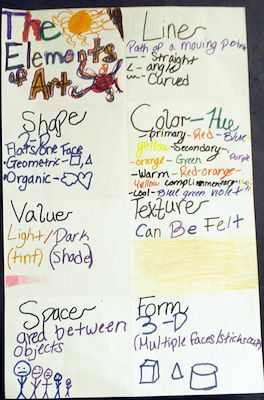 The
Elements
of
Art
Line
Path of a moving point
— - Straight
∠ - angle
~ - Curved
Shape
2-D
Flats/one Face
•Geometric-
•Organic-
Color-Hue
-primary-Red-Blue
yellow-Secondary-
orange-Green Purple
-Warm-Red-orange-
yellow complimentary
-cool-Blue green violet
Value
Light/Dark
(tint) (shade)
Texture
Can Be Felt
Space
area between
objects
Form
3-D
(Multiple Faces/sticks out)